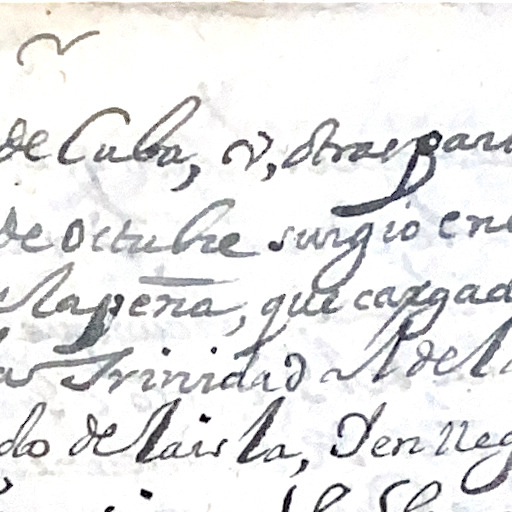 de Cuba, v, otras par
de octubre surgio en
la peña, que cargad
Trinidad al de l
do de la isla, Den lleg